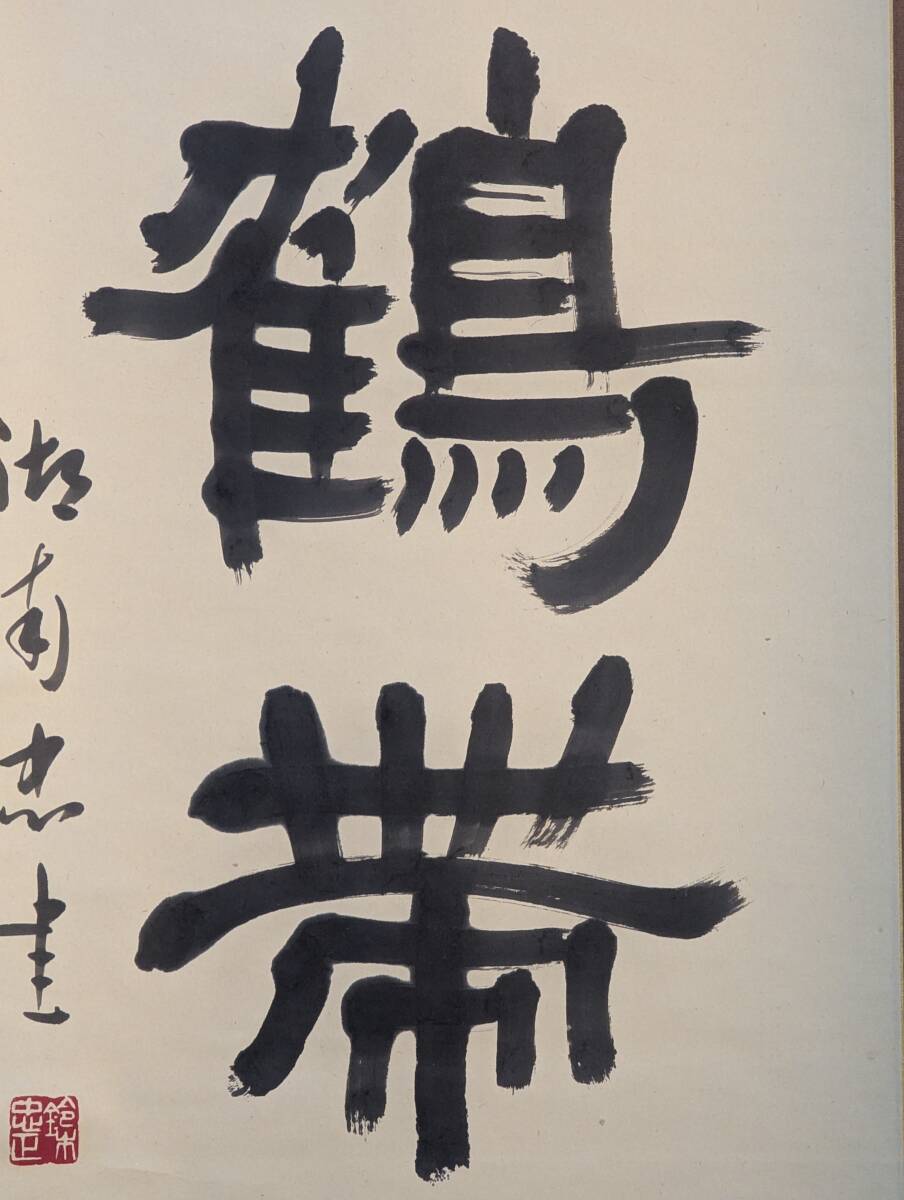 鶴帯
湖南忠書
鈴木忠正